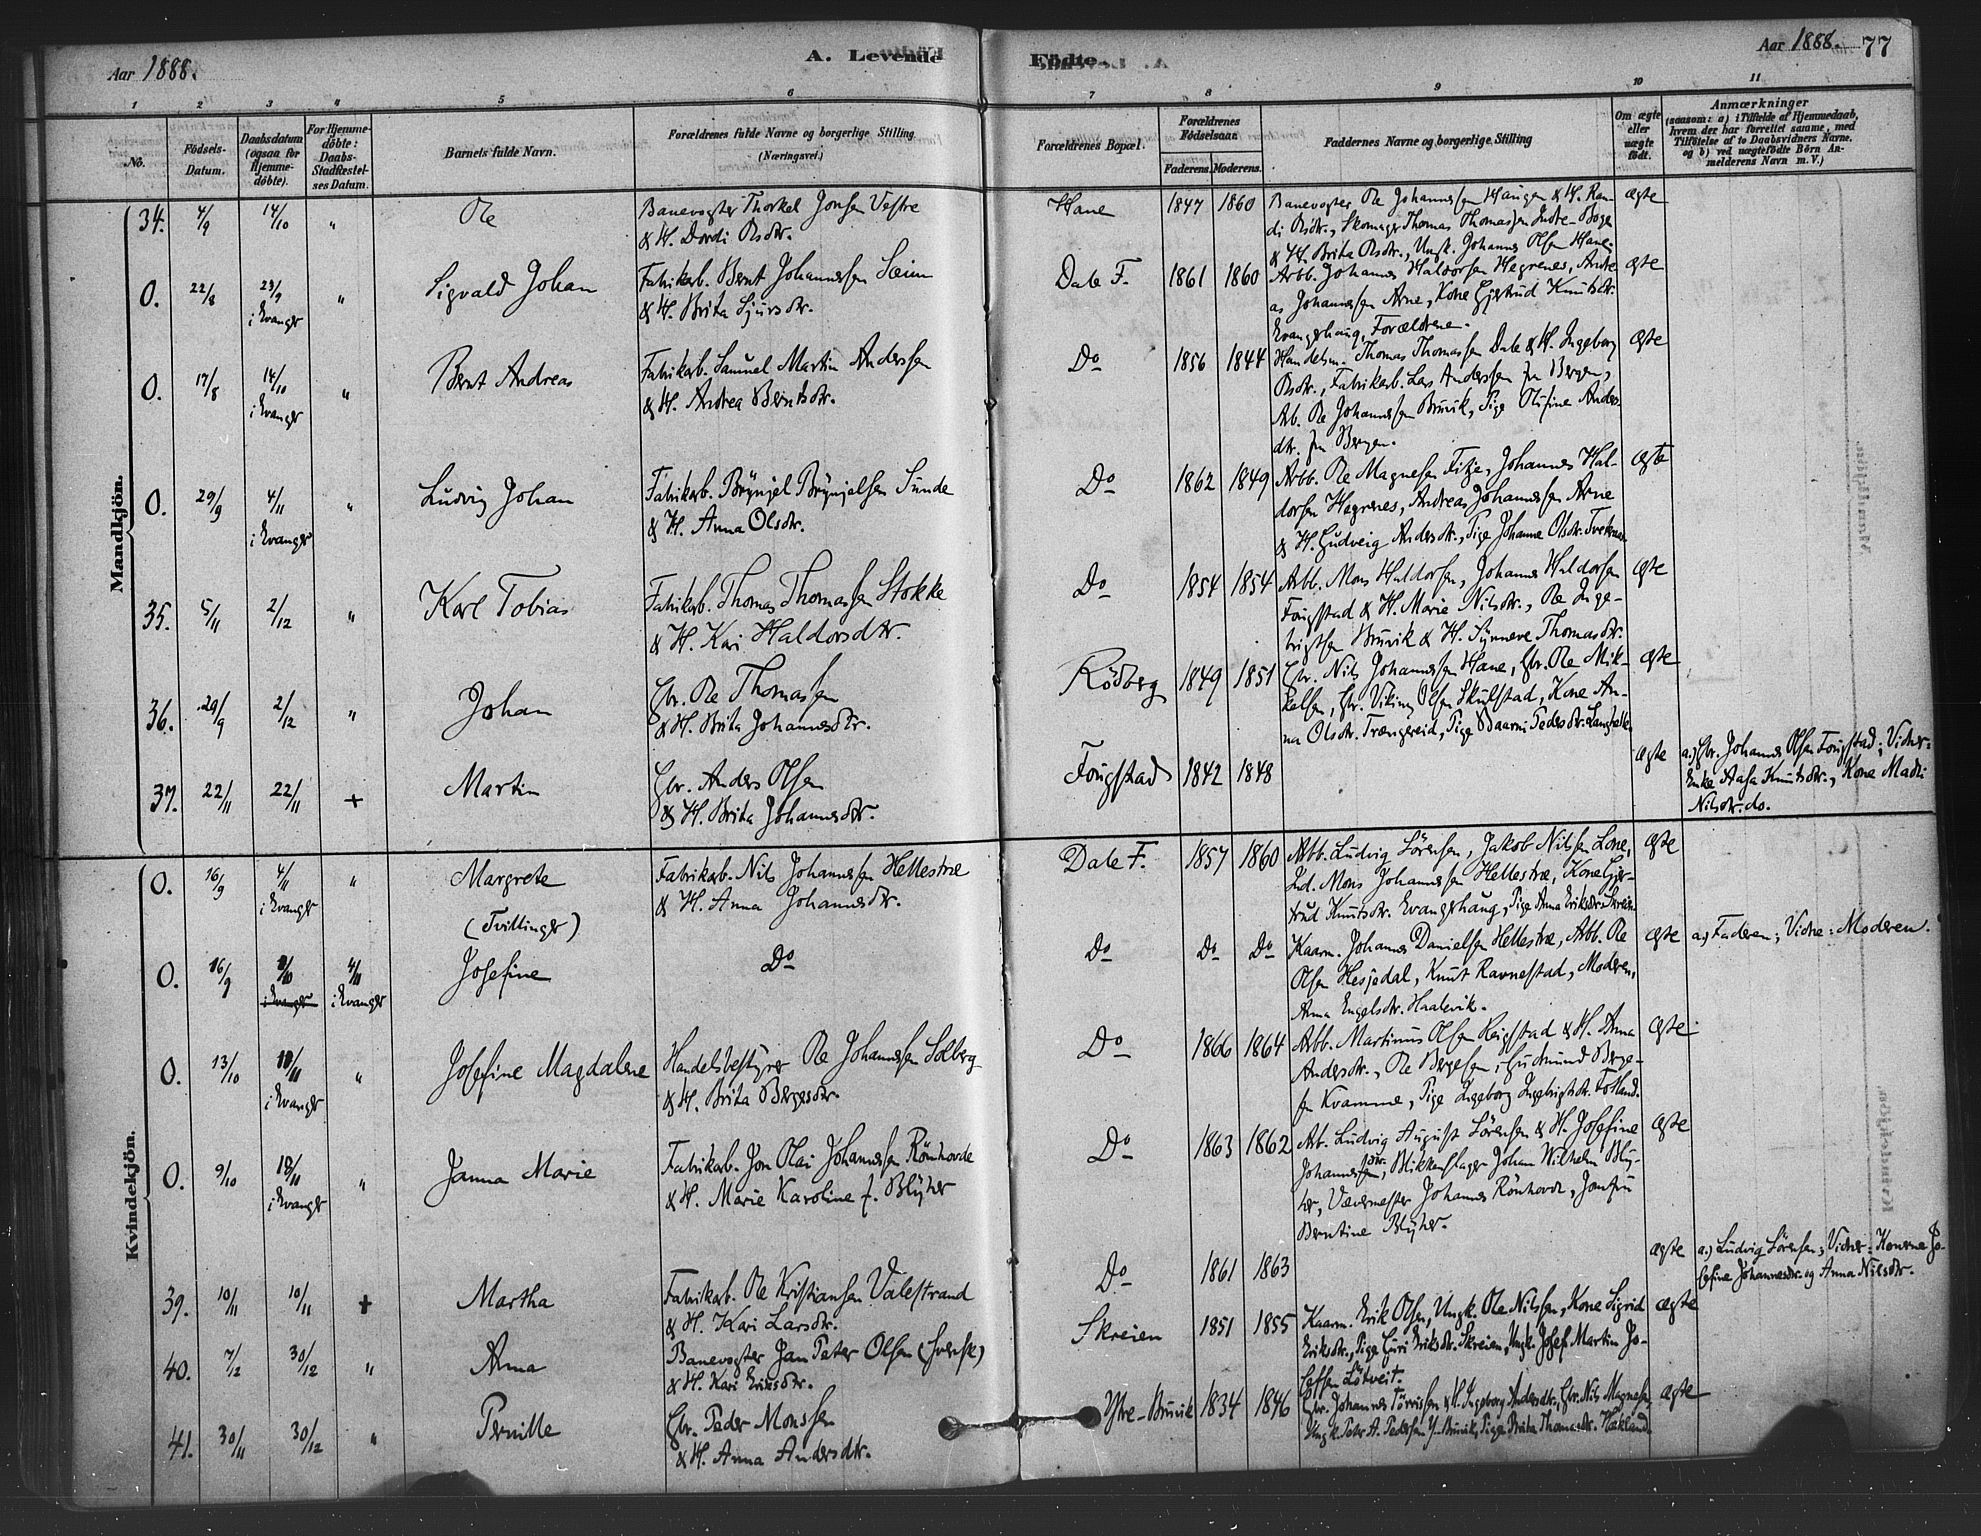 Aar 1888.
A. Levende
Födte.
Aar 1888. 77
1 2 3 4 5 6 7 8 9 10 11
No.
Födsels-
Datum.
Daabsdatum
(ogsaa for
Hjemme-
döbte).
For Hjemme-
döbte:
Daabs-
Stadfæstel-
ses Datum.
Barnets fulde Navn.
Forældrenes fulde Navne og borgerlige Stilling
(Næringsvei.)
Forældrenes Bopæl.
Forældrenes
Födselsaar.
Faderens. Moderens.
Faddernes Navne og borgerlige Stilling
Om ægte
eller
uægte
födt.
Anmærkninger
(saasom: a) i Tilfælde af Hjemmedaab,
hvem der har forrettet samme, med
Tilföielse af to Daabsvidners Navne.
og b) ved uægtefödte Börn An-
melderens Navn m. V.)
Mandkjön.
34. 4/9 14/10 " Ole
Banevogter Thorkel Jonsen Vestre
& H. Dordi Olsdtr.
Hane 1847 1860
Banevogter Ole Johannessen Haugen & H. Ran-
di Olsdtr., Skomager Thomas Thomassen Indre-Boge
& H. Brita Olsdtr., Ungk. Johannes Olsen Hane.
ægte
O. 22/8 23/9 i Evanger " Sigvald Johan
Fabrikarb. Bernt Johannessen Seim
& H. Brita Sjursdtr.
Dale F. 1861 1860
Arbb. Johannes Haldorsen Hegrenes, Andre-
as Johannessen Arne, Kone Gjertrud Knutsdtr.
Evangerhaug, Forældrene.
ægte
O. 17/8 14/10 i Evanger " Bernt Andreas
Fabrikarb. Samuel Martin Anderssen
& H. Andrea Berntsdtr.
Do 1856 1844
Handelsm. Thomas Thomassen Dale & H. Ingeborg
Olsdtr., Fabrikarb. Lars Anderssen fra Bergen,
Arb. Ole Johannessen Bruvik, Pige Olufine Anders-
dtr. fra Bergen.
ægte
O. 29/9 4/11 i Evanger " Ludvig Johan
Fabrikarb. Brynjel Brynjelsen Sunde
& H. Anna Olsdtr.
Do 1862 1849
Arbb. Ole Magnesen Fitje, Johannes Hal-
dorsen Hegrenes, Andreas Johannessen Arne
& H. Gudveig Andersdtr., Pige Johanne Olsdtr.
ægte
35. 5/11 2/12 " Karl Tobias
Fabrikarb. Thomas Thomassen Stokke
& H. Kari Haldorsdtr.
Do 1854 1854
Arbb. Mons Haldorsen, Johannes Haldorsen
Fougstad & H. Marie Nilsdtr., Ole Inge-
brigtsen Bruvik & H. Synneve Thomasdtr.
ægte
36. 29/9 2/12 " Johan
Gbr. Ole Thomassen
& H. Brita Johannesdtr.
Rödberg 1849 1851
Gbr. Nils Johannessen Hane, Gbr. Ole Mik-
kelsen, Gbr. Viking Olsen Skulstad, Kone An-
na Olsdtr. Trængereid, Pige Baarni Pedersdtr.
ægte
37. 22/11 22/11 + Martin
Gbr. Anders Olsen
& H. Brita Johannesdtr.
Fougstad 1842 1848
ægte
a.) Gbr. Johannes Olsen Fougstad; Vidner:
Enke Aasa Knutsdtr., Kone Madli
Nilsdtr. do.
Kvindekjön.
O. 16/9 4/11 i Evanger " Margrete
(Tvillinger)
Fabrikarb. Nils Johannessen Hellestræ
& H. Anna Johannesdtr.
Dale F. 1857 1860
Arbb. Ludvig Sörensen, Jakob Nilsen Lone,
Ind. Mons Johannessen Hellestræ, Kone Gjer-
trud Knutsdtr. Evangerhaug, Pige Anna Eriksdtr.
ægte
O. 16/9 4/11 i Evanger Josefine
Do
Do Do Do
Kaarm. Johannes Danielsen Hellestræ, Arbb. Ole
Olsen Hesjedal, Knut Ravnestad, Moderen,
Anna Engelsdtr. Haalevik.
ægte
a.) Faderen; Vidne: Moderen.
O. 13/10 18/11 i Evanger " Josefine Magdalene
Handelsbestyrer Ole Johannessen Solberg
& H. Brita Bergesdtr.
Do 1866 1864
Arbb. Martinus Olsen Reigstad & H. Anna
Andersdtr., Ole Bergesen, Gudmund Berge-
sen Kvamme, Pige Ingeborg Ingebrigtsdtr. Fotland.
ægte
O. 9/10 18/11 i Evanger " Janna Marie
Fabrikarb. Jon Olai Johannessen Rönhovde
& H. Marie Karoline f. Blyher
Do 1863 1862
Arb. Ludvig August Sörensen & H. Josefine
Johannesdtr., Blikkenslager Johan Wilhelm Bly-
her, Vævermester Johannes Rönhovde, Jomfru
Berntine Blyher.
ægte
39. 10/11 10/11 + Martha
Fabrikarb. Ole Kristiansen Valestrand
& H. Kari Larsdtr.
Do 1861 1863
ægte
a.) Ludvig Sörensen; Vidner: Konerne Jo-
sefine Johannesdtr. og Anna Nilsdtr.
40. 7/12 30/12 " Anna
Banevogter Jan Peter Olsen (svensk)
& H. Kari Eriksdtr.
Skreien 1851 1855
Kaarm. Erik Olsen, Ungk. Ole Nilsen, Kone Sigrid
Eriksdtr., Pige Guri Eriksdtr. Skreien, Ungk. Josef Martin Jo-
sefsen Lötveit.
ægte
41. 30/11 30/12 " Pernille
Gbr. Peder Monssen
& H. Anna Andersdtr.
Ytre-Bruvik 1834 1846
Gbr. Johannes Törrissen & H. Ingeborg Andersdtr., Gbr. Nils Magnesen,
Ungk. Peter A. Pedersen Y.-Bruvik, Pige Brita Thomasdtr. Hækland.
ægte